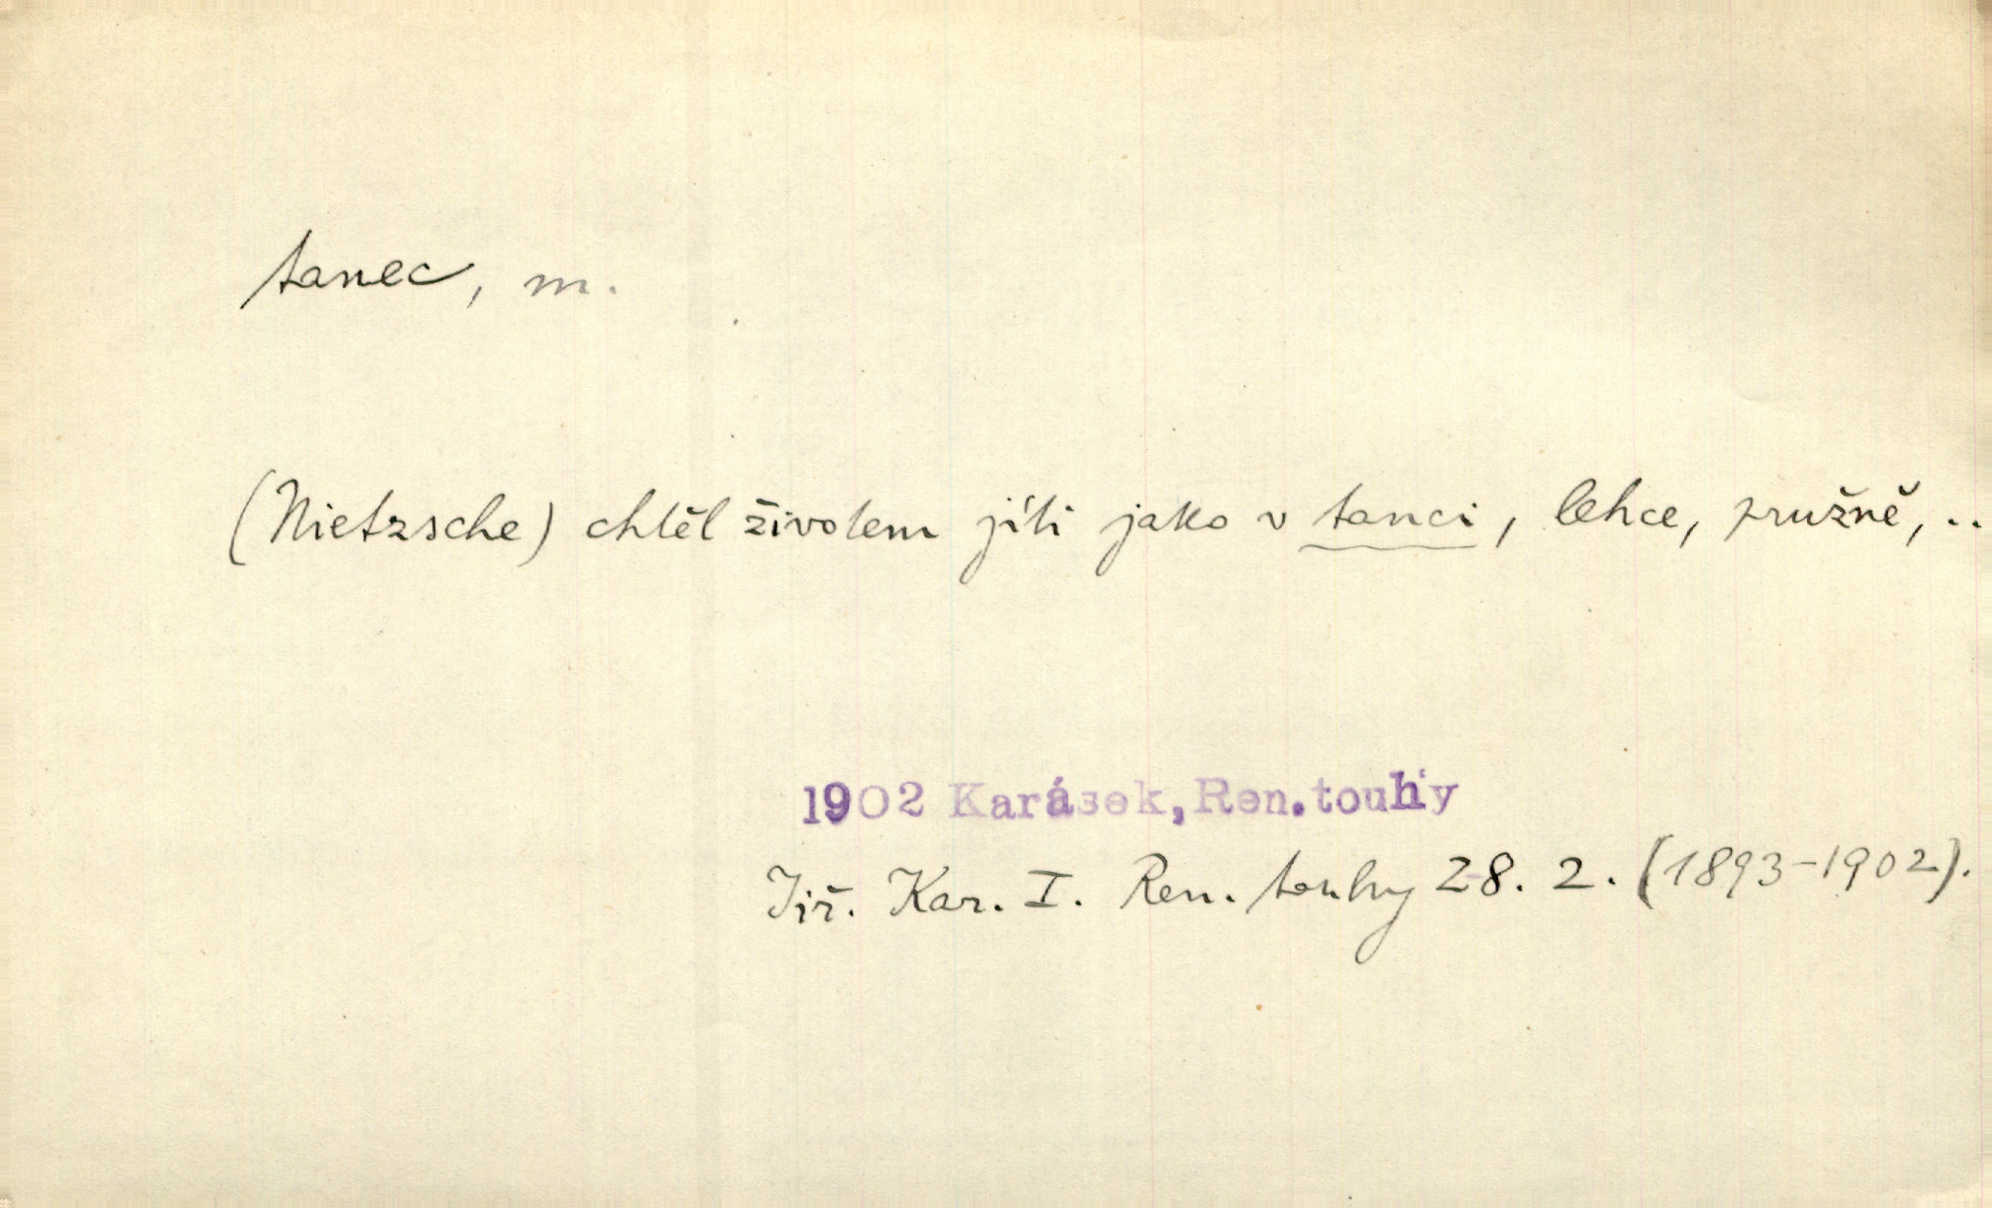 tanec, m.
(Nietzsche) chtěl životem jíti jako v tanci, lehce, pružně, ..
1902 Karásek, Ren. touhy
Jiř. Kar. I. Ren. touhy 28. 2. (1893-1902).